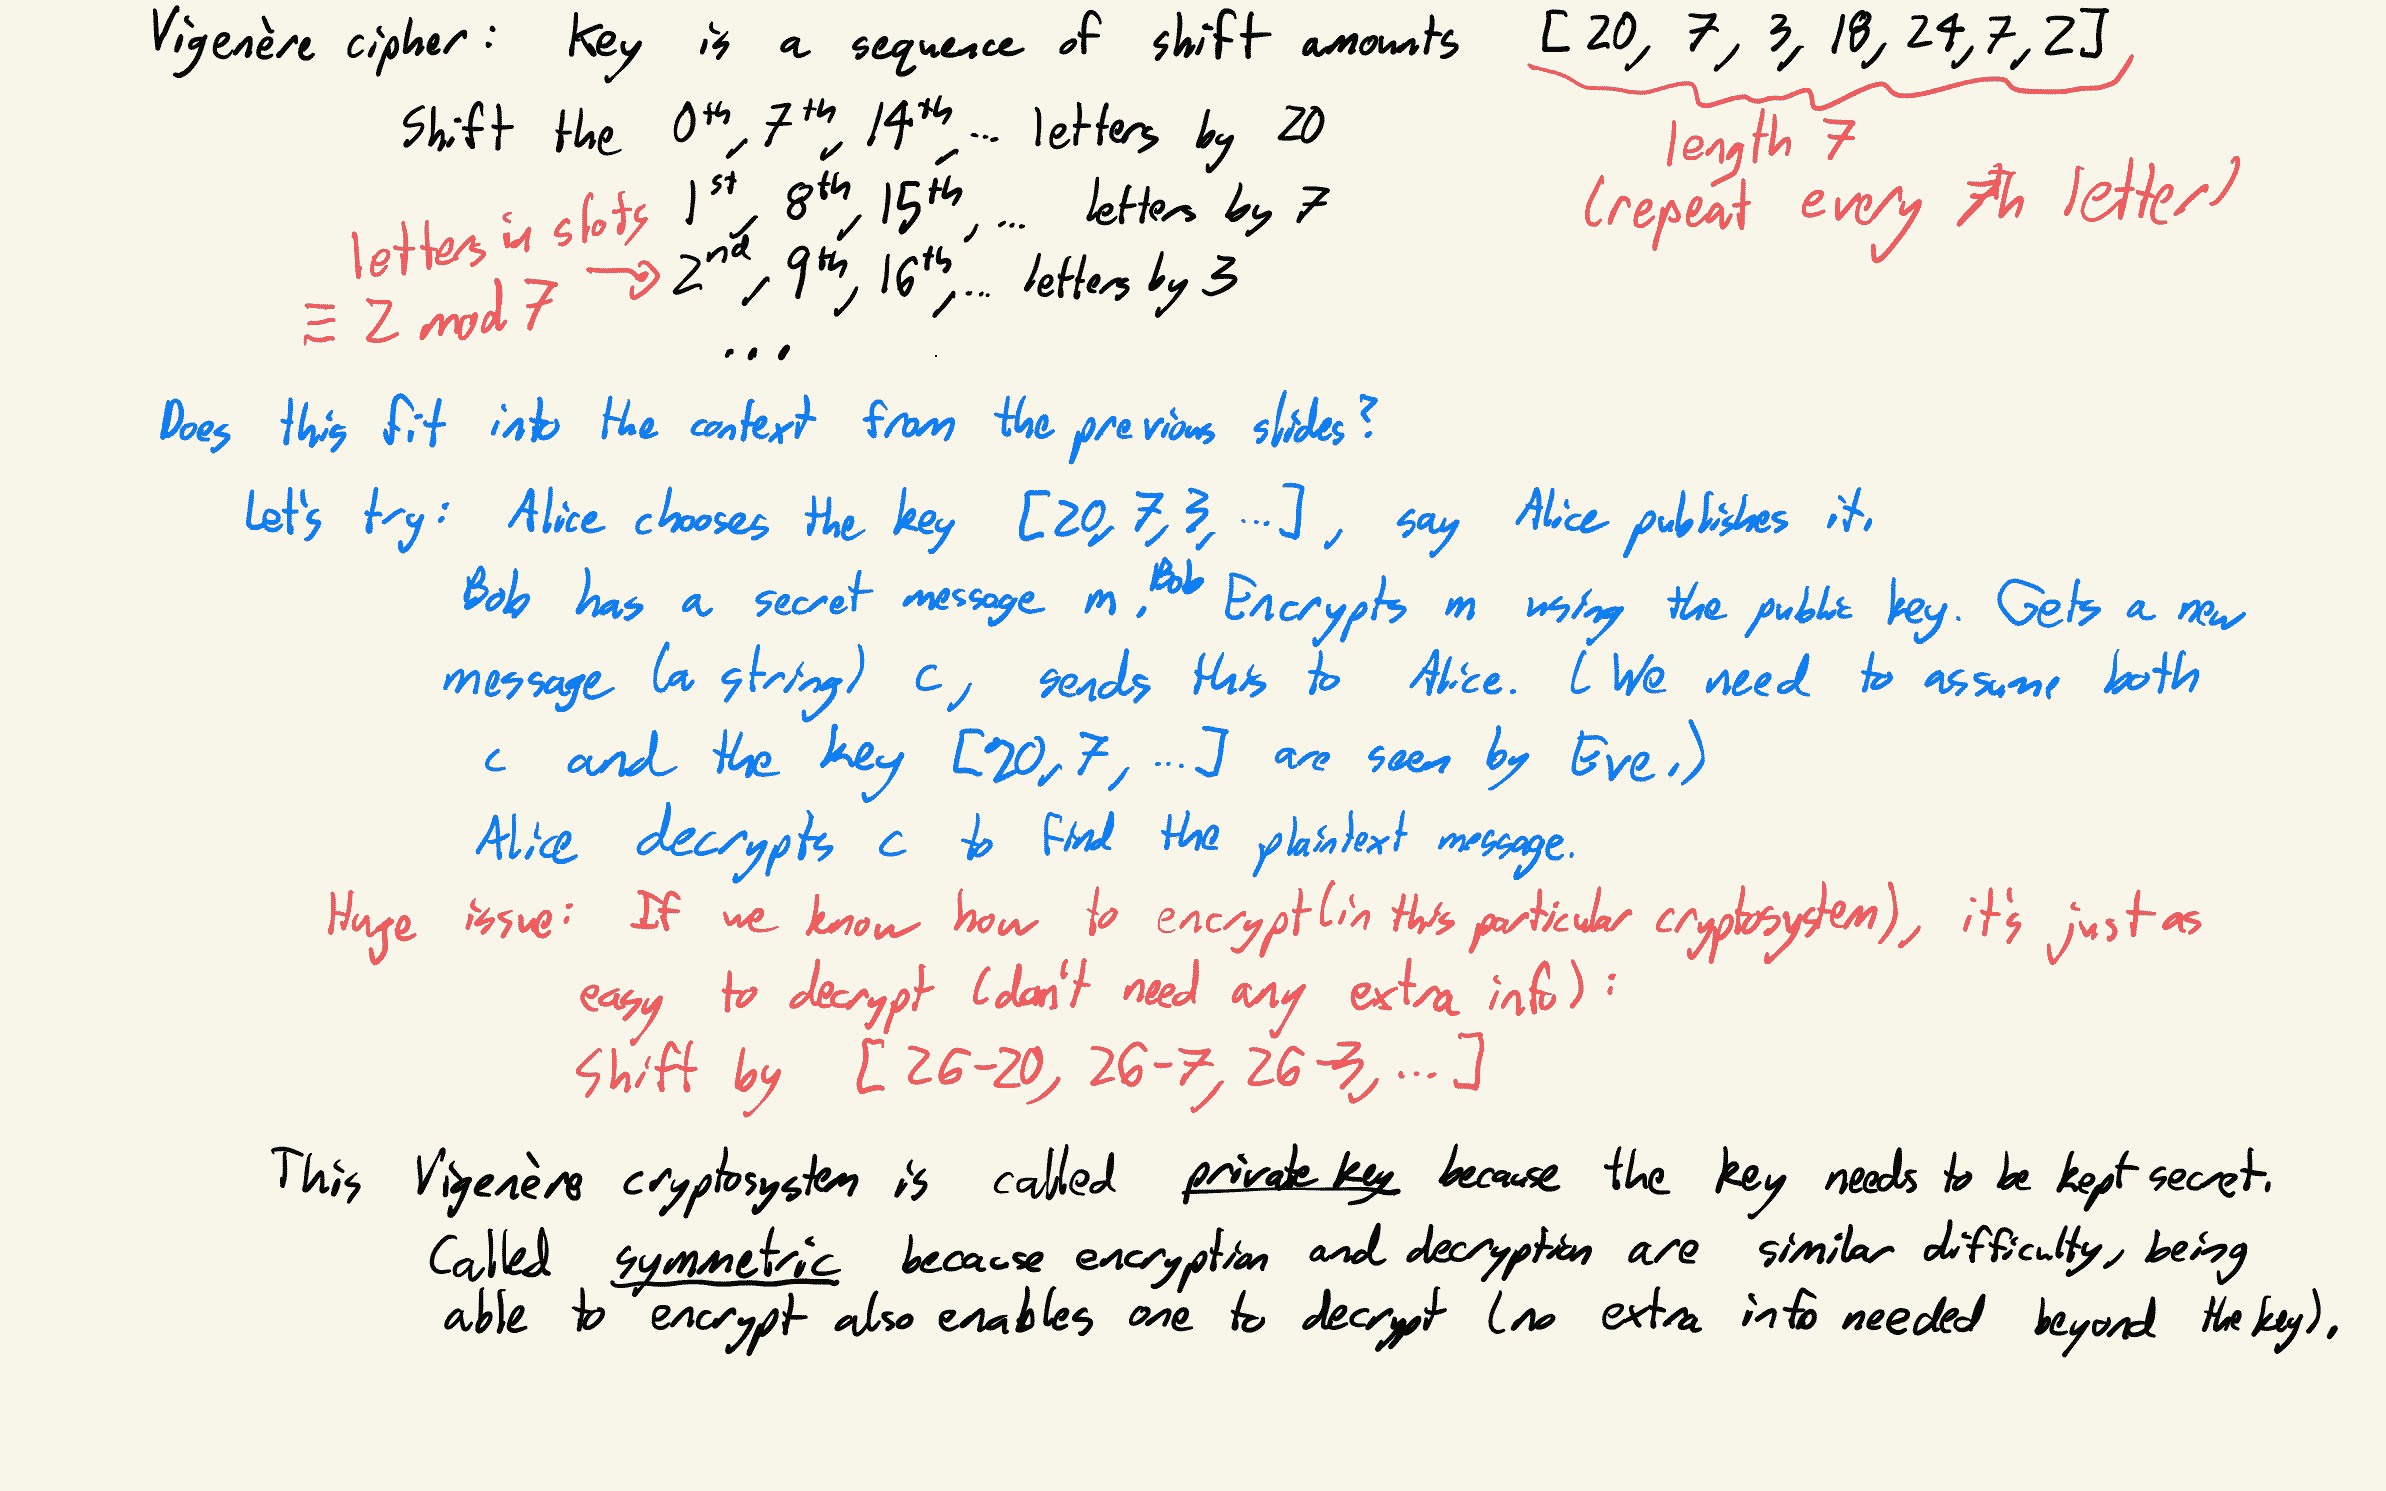 Vigenère cipher: Key is a sequence of shift amounts [20, 7, 3, 18, 24, 7, 2]
length 7
(repeat every 7th letter)
Shift the 0th, 7th, 14th, ... letters by 20
1st, 8th, 15th, ... letters by 7
2nd, 9th, 16th, ... letters by 3
letters in slots
≡ 2 mod 7
...
Does this fit into the context from the previous slides?
Let's try: Alice chooses the key [20, 7, 3, ...], say Alice publishes it.
Bob has a secret message m. Bob Encrypts m using the public key. Gets a new
message (a string) c, sends this to Alice. (We need to assume both
c and the key [20, 7, ...] are seen by Eve.)
Alice decrypts c to find the plaintext message.
Huge issue: If we know how to encrypt (in this particular cryptosystem), it's just as
easy to decrypt (don't need any extra info):
Shift by [26-20, 26-7, 26-3, ...]
This Vigenère cryptosystem is called private key because the key needs to be kept secret.
Called symmetric because encryption and decryption are similar difficulty, being
able to encrypt also enables one to decrypt (no extra info needed beyond the key).